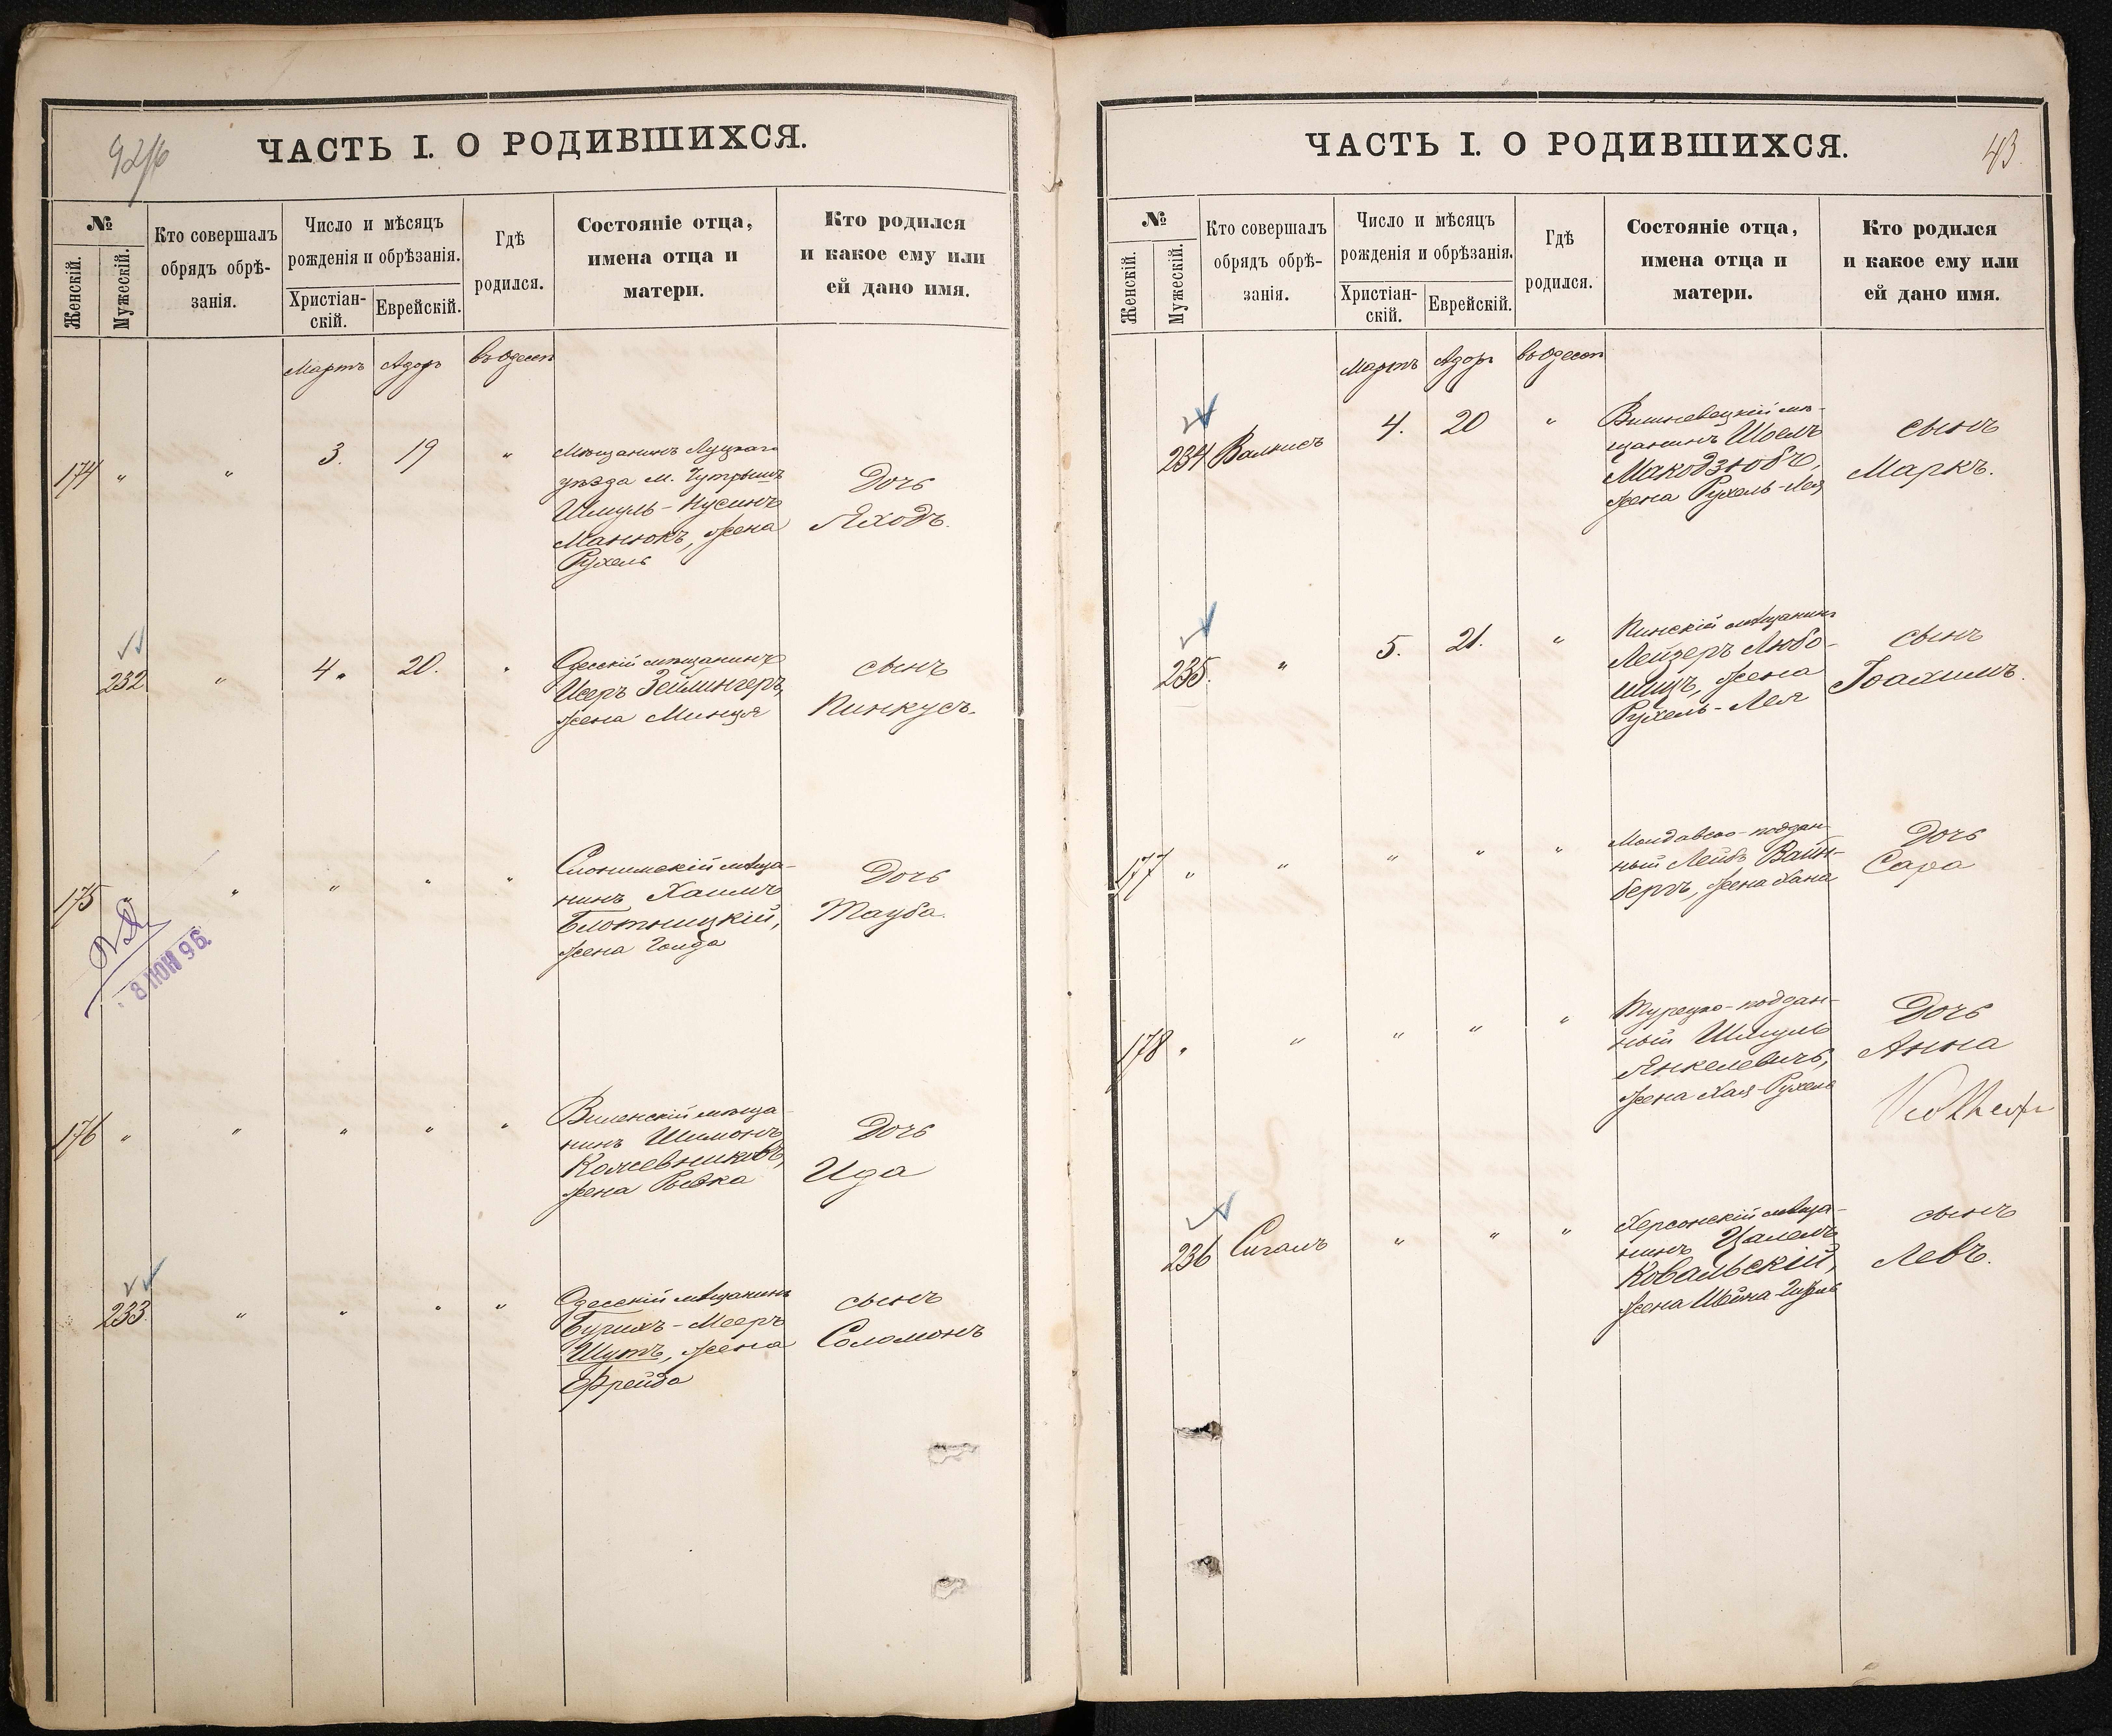 42/б
ЧАСТЬ I. О РОДИВШИХСЯ.
№
Женскій.
Мужескій.
Кто совершалъ
обрядъ обрѣ-
занія.
Число и мѣсяцъ
рожденія и обрѣзанія.
Христіан-
скій.
Еврейскій.
Гдѣ
родился.
Состояніе отца,
имена отца и
матери.
Кто родился
и какое ему или
ей дано имя.
Мартъ Адоръ въ Одессѣ
174 " " 3. 19 "
Мѣщанинъ Луцкаго
уѣзда м.
Шмуль-Нусинъ
Манюкъ, жена
Рухель
Дочь
Яходъ.
232 " 4. 20. "
Одесскій мѣщанинъ
Исеръ Зейлингеръ,
жена Минця
сынъ
Пинкусъ.
175 " " " " "
Слонимскій мѣща-
нинъ Хаимъ
Блотницкій,
жена Голда
Дочь
Тауба.
8 ІЮН 96.
176 " " " " "
Виленскій мѣща-
нинъ Шимонъ
Кожевниковъ,
жена Рывка
Дочь
Ида
233. " " " "
Одесскій мѣщанинъ
Бурихъ-Мееръ
Шутъ, жена
Фрейда
сынъ
Соломонъ
ЧАСТЬ I. О РОДИВШИХСЯ.
43.
№
Женскій.
Мужескій.
Кто совершалъ
обрядъ обрѣ-
занія.
Число и мѣсяцъ
рожденія и обрѣзанія.
Христіан-
скій.
Еврейскій.
Гдѣ
родился.
Состояніе отца,
имена отца и
матери.
Кто родился
и какое ему или
ей дано имя.
Мартъ Адоръ въ Одессѣ
234 Валнисъ 4. 20 "
Вишневецкій мѣ-
щанинъ Шоелъ
Макодзюбъ,
жена Рухель-Лея
сынъ
Маркъ.
235. " 5. 21. "
Пинскій мѣщанинъ
Лейзеръ Любо-
шицъ, жена
Рухель-Лея
сынъ
Іоахимъ.
177 " " " " "
Молдавско-поддан-
ный Лейбъ Вайн-
бергъ, жена Хана
Дочь
Сара
178 " " " " "
Турецко-поддан-
ный Шмуль
Янкелевичъ,
жена Хая-Рухель
Дочь
Анна
236 Сигалъ " " "
Херсонскій мѣща-
нинъ Цалелъ
Ковальскій,
жена Шейна-
сынъ
Левъ.